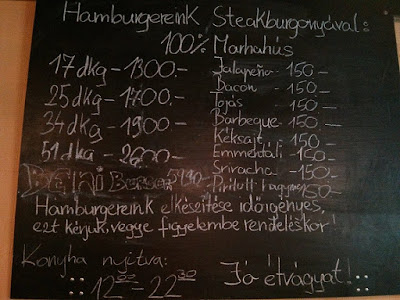 Hamburgereink Steakburgonyával:
100% Marhahús
17 dkg - 1300.-
25 dkg - 1700.-
34 dkg - 1900-
51 dkg -
Jalapeño - 150-
Bacon - 150-
Tojás - 150-
Barbeque - 150-
Kéksajt - 150-
Ementáli - 150-
Sriracha - 150-
Pirított hagyma 150-
BAHI Burger
Hamburgereink elkészítése időigényes,
ezt kérjük, vegye figyelembe rendeléskor
Konyha nyitva:
12 00 - 22 30
Jó étvágyat!